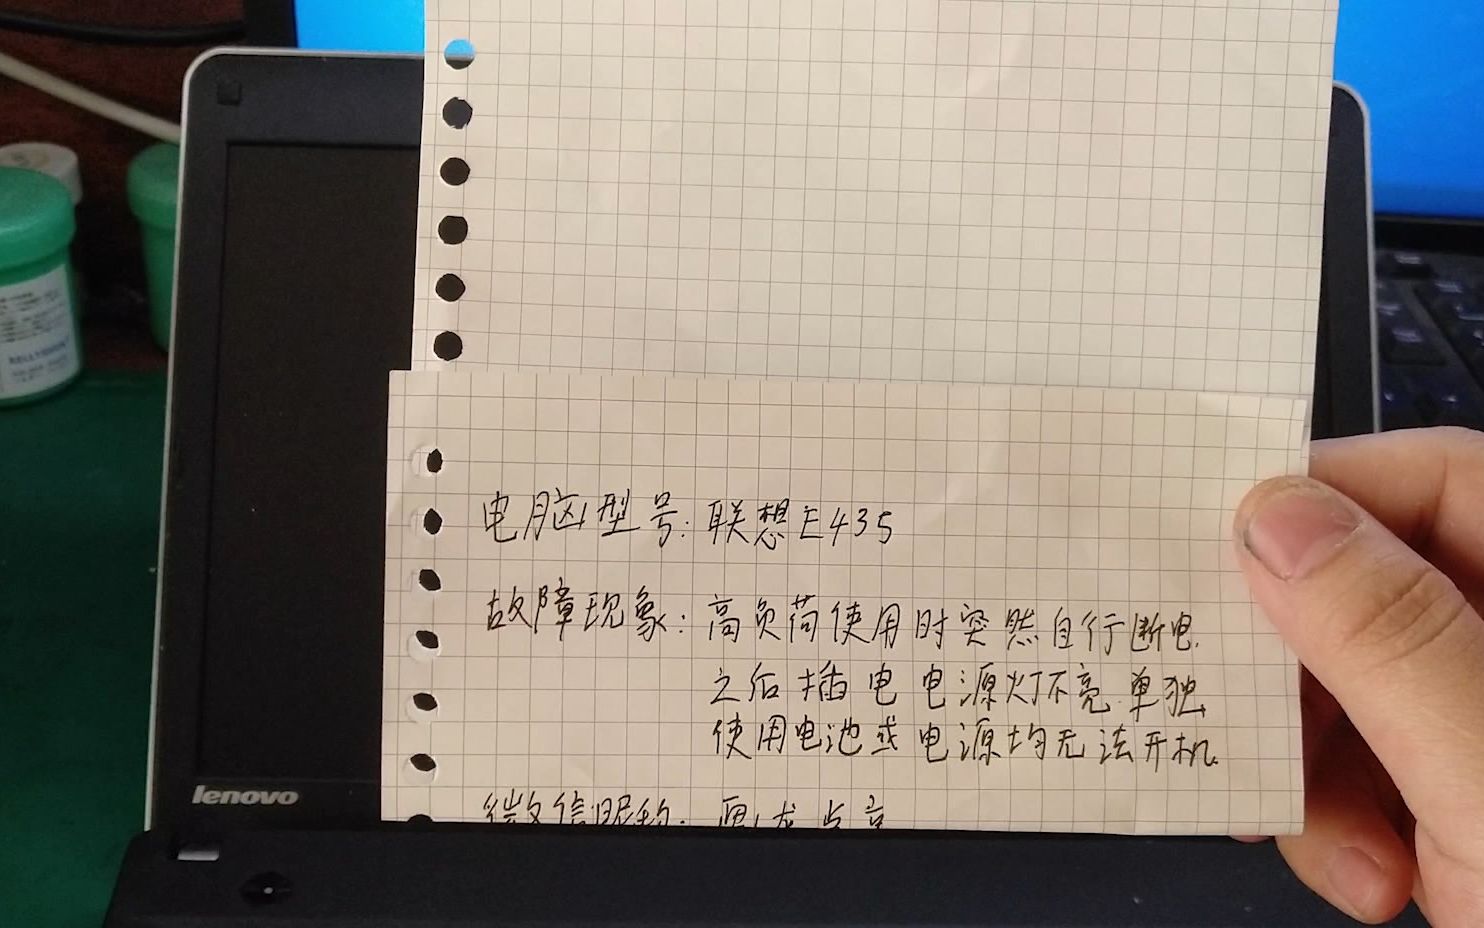 电脑型号:联想E435
故障现象:高负荷使用时突然自行断电.
之后插电电源灯不亮.单独
使用电池或电源均无法开机.
微信昵称:
lenovo